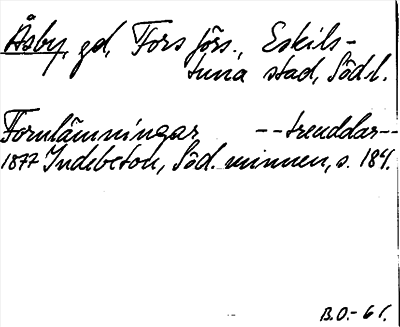 Åsby, gd, Fors förs., Eskils-
tuna stad, Södl.
Fornlämningar --treuddar--
1877 Indebetou, Söd. minnen, s. 184.
B.O.-61.